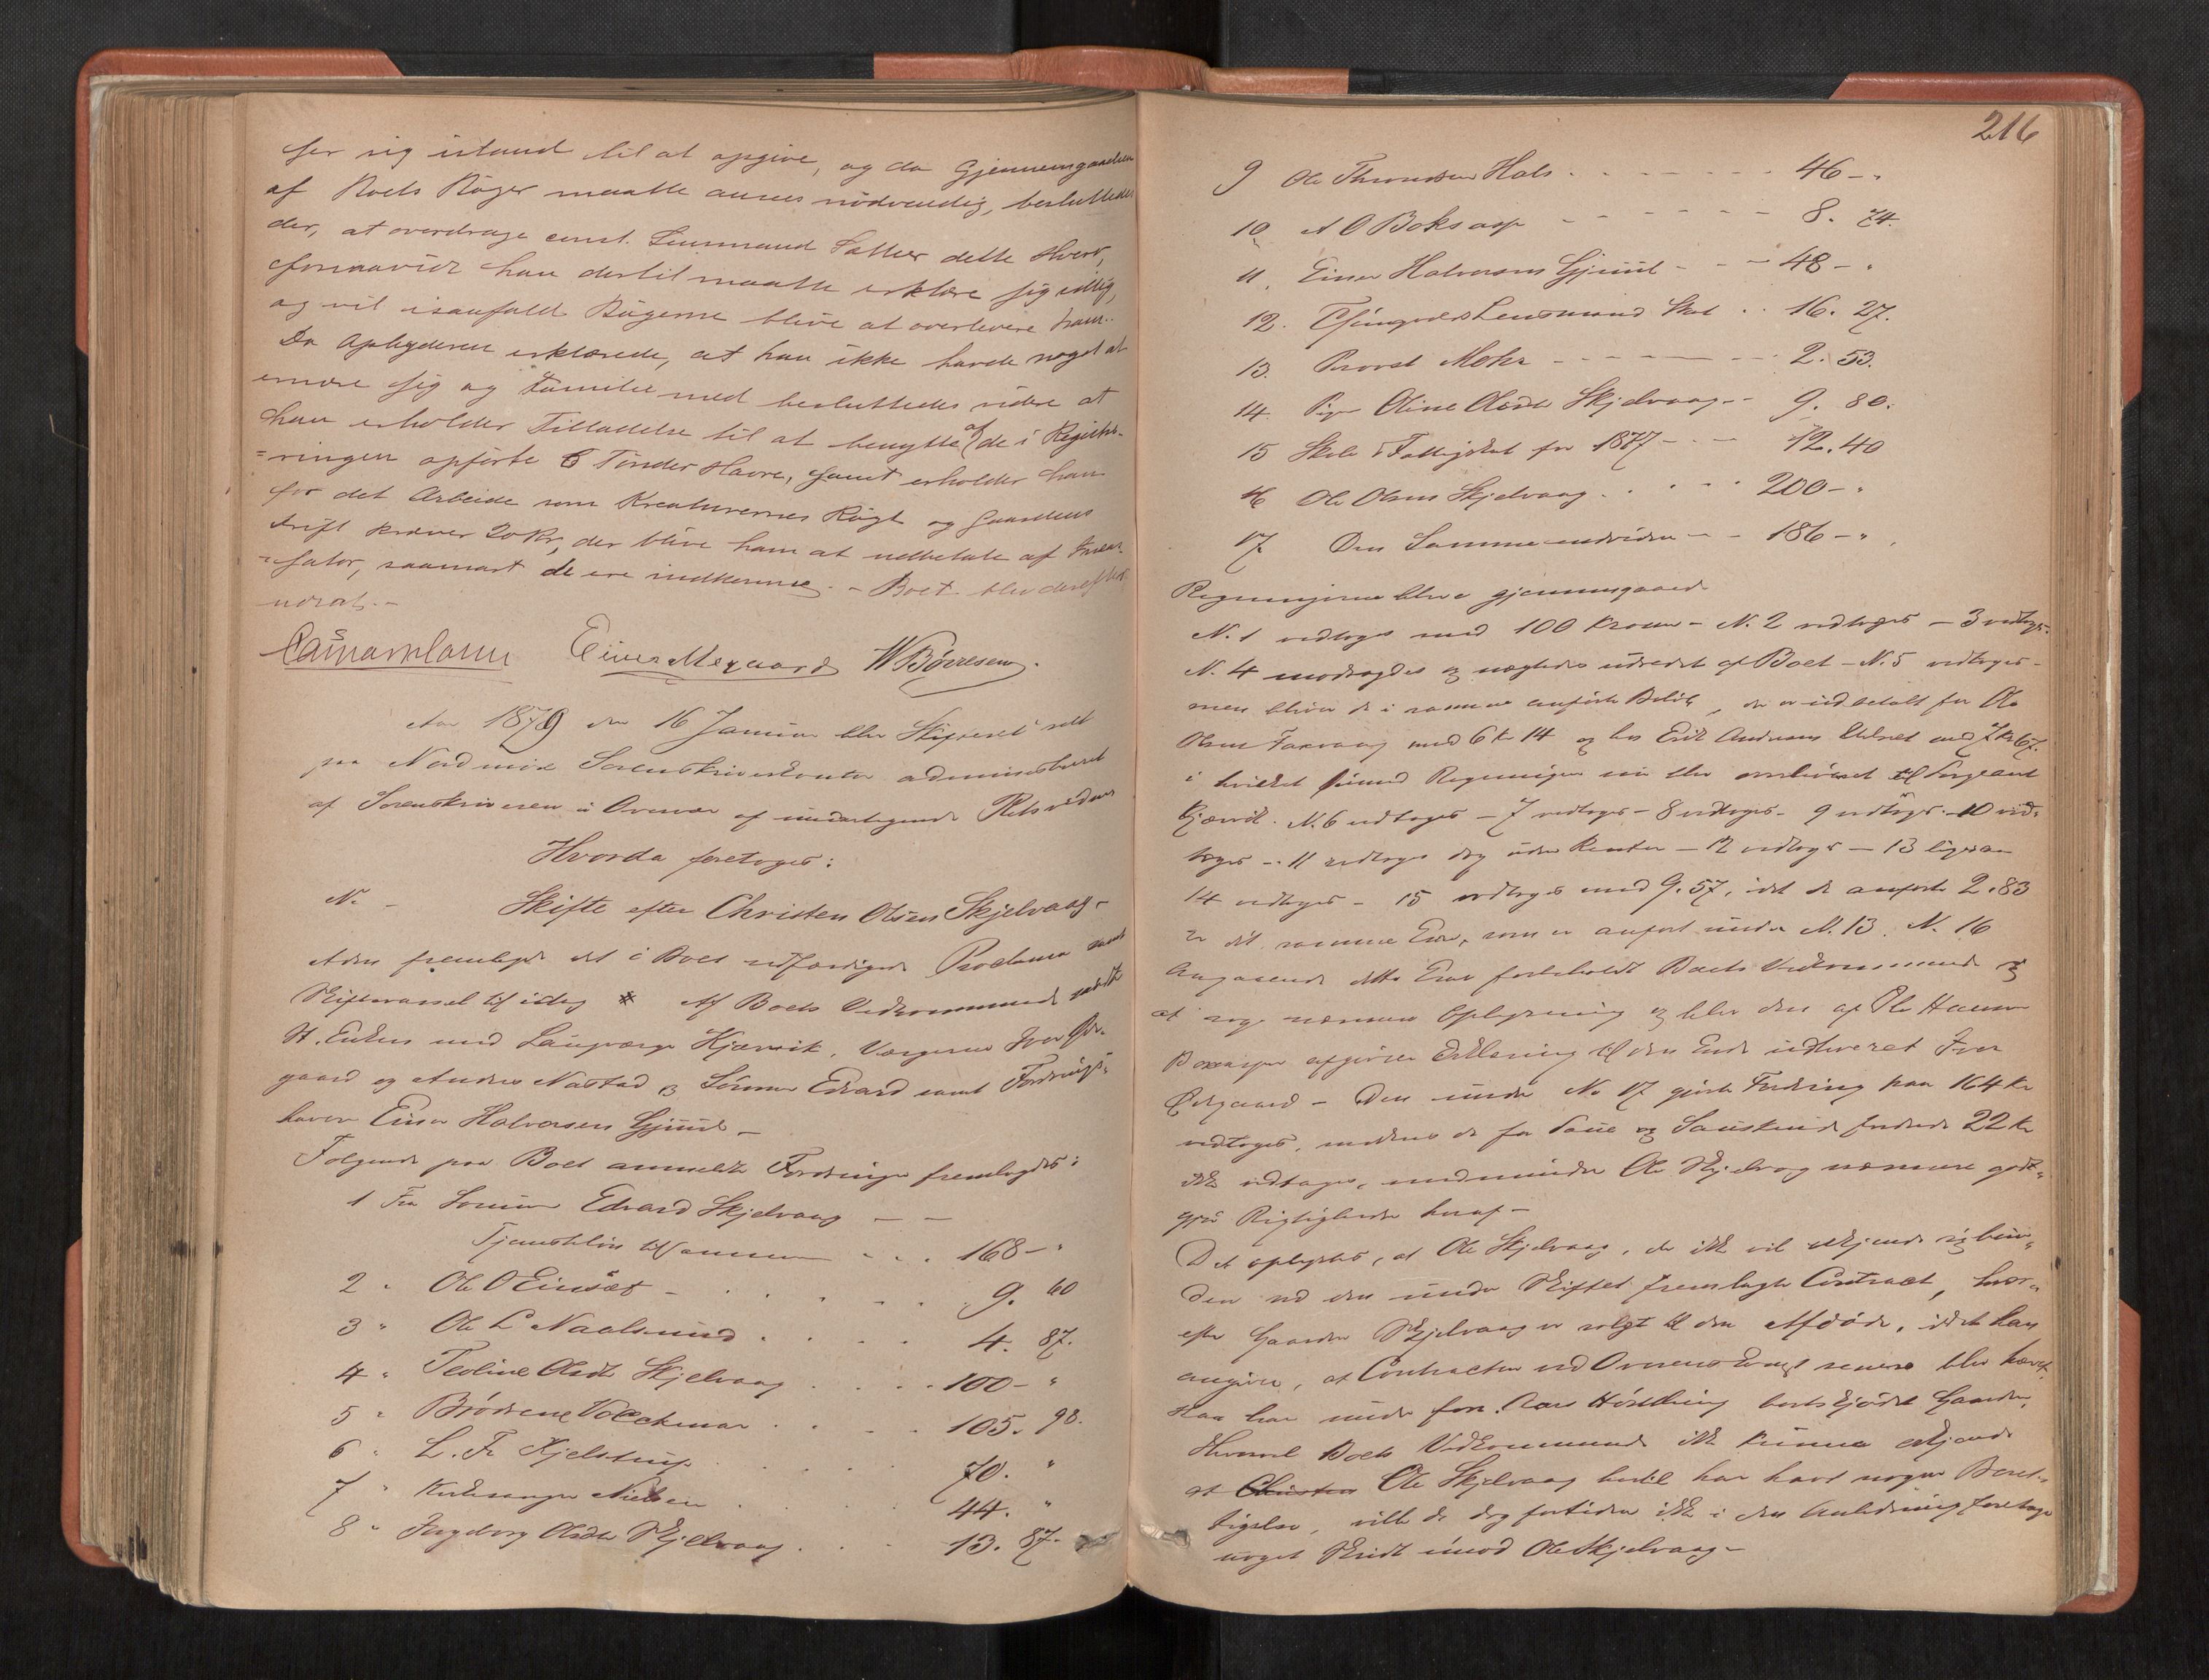 ser sig istand til at opgive, og da Gjennemgaaelsen
af Boets Bøger maatte ansees nødvendig, besluttedes
der, at overdrage const. Lensmand Sather dette Hverv,
forsaavidt han dertil maatte erklære sig villig,
og vil isaafald Bøgerne blive at overlevere ham.
Da Opbyderen erklærede, at han ikke havde noget at
ernære sig og Familie med besluttedes videre at
han erholder Tilladelse til at benytte af de i Registre-
=ringen opførte 6 Tønder Havre, samt erholder han
for det Arbeide som Kreaturernes Røgt og Gaardens
drift kræver 20 Kr, der blive ham at udbetale af Incas-
=sator, saasnart de ere indkomne. - Boet blev derefter
udsat.-
Einer Megaard W Børresen.
Aar 1879 den 16 Januar blev Skifteret sat
paa Nordmøre Sorenskriverkontor administreret
af Sorenskriveren i Overvær af undertegnede Retsvidner
Hvorda foretoges:
No - Skifte efter Christen Olsen Skjelvaag-
Aden fremlagde det i Boet udfærdigede Proclama samt
Skiftevarsel til idag Af Boets Vedkommende mødte
H. Enken med Laugværge Kjærvik, Værgerne Iver Øde-
gaard og Anders Nastad og Sønnen Edvard samt Fordrings-
haver Einer Halvorsen Gjiul -
Følgende paa Boet anmeldte Fordringer fremlagdes:
1 Fra Sønnen Edvard Skjelvaag - -
Tjenesteløn til sammen . . . 168 - "
2 " Ole O Einset - . . . . 9. 60
3 " Ole L Naalsund . . . . 4. 87.
4 " Teoline Olsdt Skjelvaag . . . 100 - "
5 " Brødrene Volckmar . . . 105. 98.
6 " L. Fr Kjelstrup . . . 70. "
7 " Kirkesanger Nielsen . . . 44. "
8 " Ingeborg Olsdtr Skjelvaag . . . 13. 87.
216
9 Ole Thronsen Hals . . . 46 - "
10 A O Boksasp - - - - 8. 74.
11. Einer Halvorsen Gjiul - - - 48 - "
12. Lensmand Skot . . 16. 27.
13. Provst Mohr - - - - 2. 53.
14. Pige Oline Olsdtr Skjelvaag - - 9. 80.
15 Skole & Fattigskat for 1877 - - - 12. 40
16 Ole Olsen Skjelvaag . . . . 200 - "
17. Den Samme endvidere - - 186 - "
Regningerne bleve gjennemgaaede
N. 1 vedtoges med 100 Kroner - N. 2 vedtoges - 3 vedtoges.
N. 4 modsagdes og nægtedes udredet af Boet - N. 5 vedtoges -
men bliver de i samme anførte Beløb, der er udbetalt for Ole
Olsen Farvaag med 6 Kr 14 og hos Erik Andersen med 7 Kr 67.
i hvilket Øiemed Regningen nu blev overleveret til Sergeant
Kjærvik. N. 6 vedtoges - 7 vedtoges - 8 vedtoges - 9 vedtoges - 10 ved-
toges - 11 vedtoges dog uden Renter - 12 vedtoges - 13 ligesaa
14 vedtoges - 15 vedtoges med 9. 57, idet de anførte 2. 83
er det samme Krav, som er anført under N. 13. N. 16
Angaaende dette Krav forbeholdt Boets Vedkommende sig
at søge nærmere Oplysning og blev den af Ole Hansen
afgivne Erklæring til den Ende udleveret Iver
Ødegaard - Den under No 17 gjorte Fordring paa 164 Kr
vedtoges, medens de for Saue og Saueskind fordrede 22 Kr
ikke vedtages, medmindre Ole Skjelvag nærmere godt-
gjør Rigtigheden heraf -
Det oplystes, at Ole Skjelvaag, der ikke vil erkjende sig bun-
den ved den under Skiftet fremlagte Contract, hvor-
efter Gaarden Skjelvaag er solgt til den Afdøde, idet han
angiver, at Contracten ved Overenskomst senere blev hævet,
staa har under fore. Aars Høstthing bortskjødet Gaarden.
Hvorvel Boets Vedkommende ikke kunne erkjende
at Christen Ole Skjelvaag hertil har havt nogen Beret-
tigelse, ville de dog fortiden ikke i den Anledning foretage
noget Skridt imod Ole Skjelvaag -